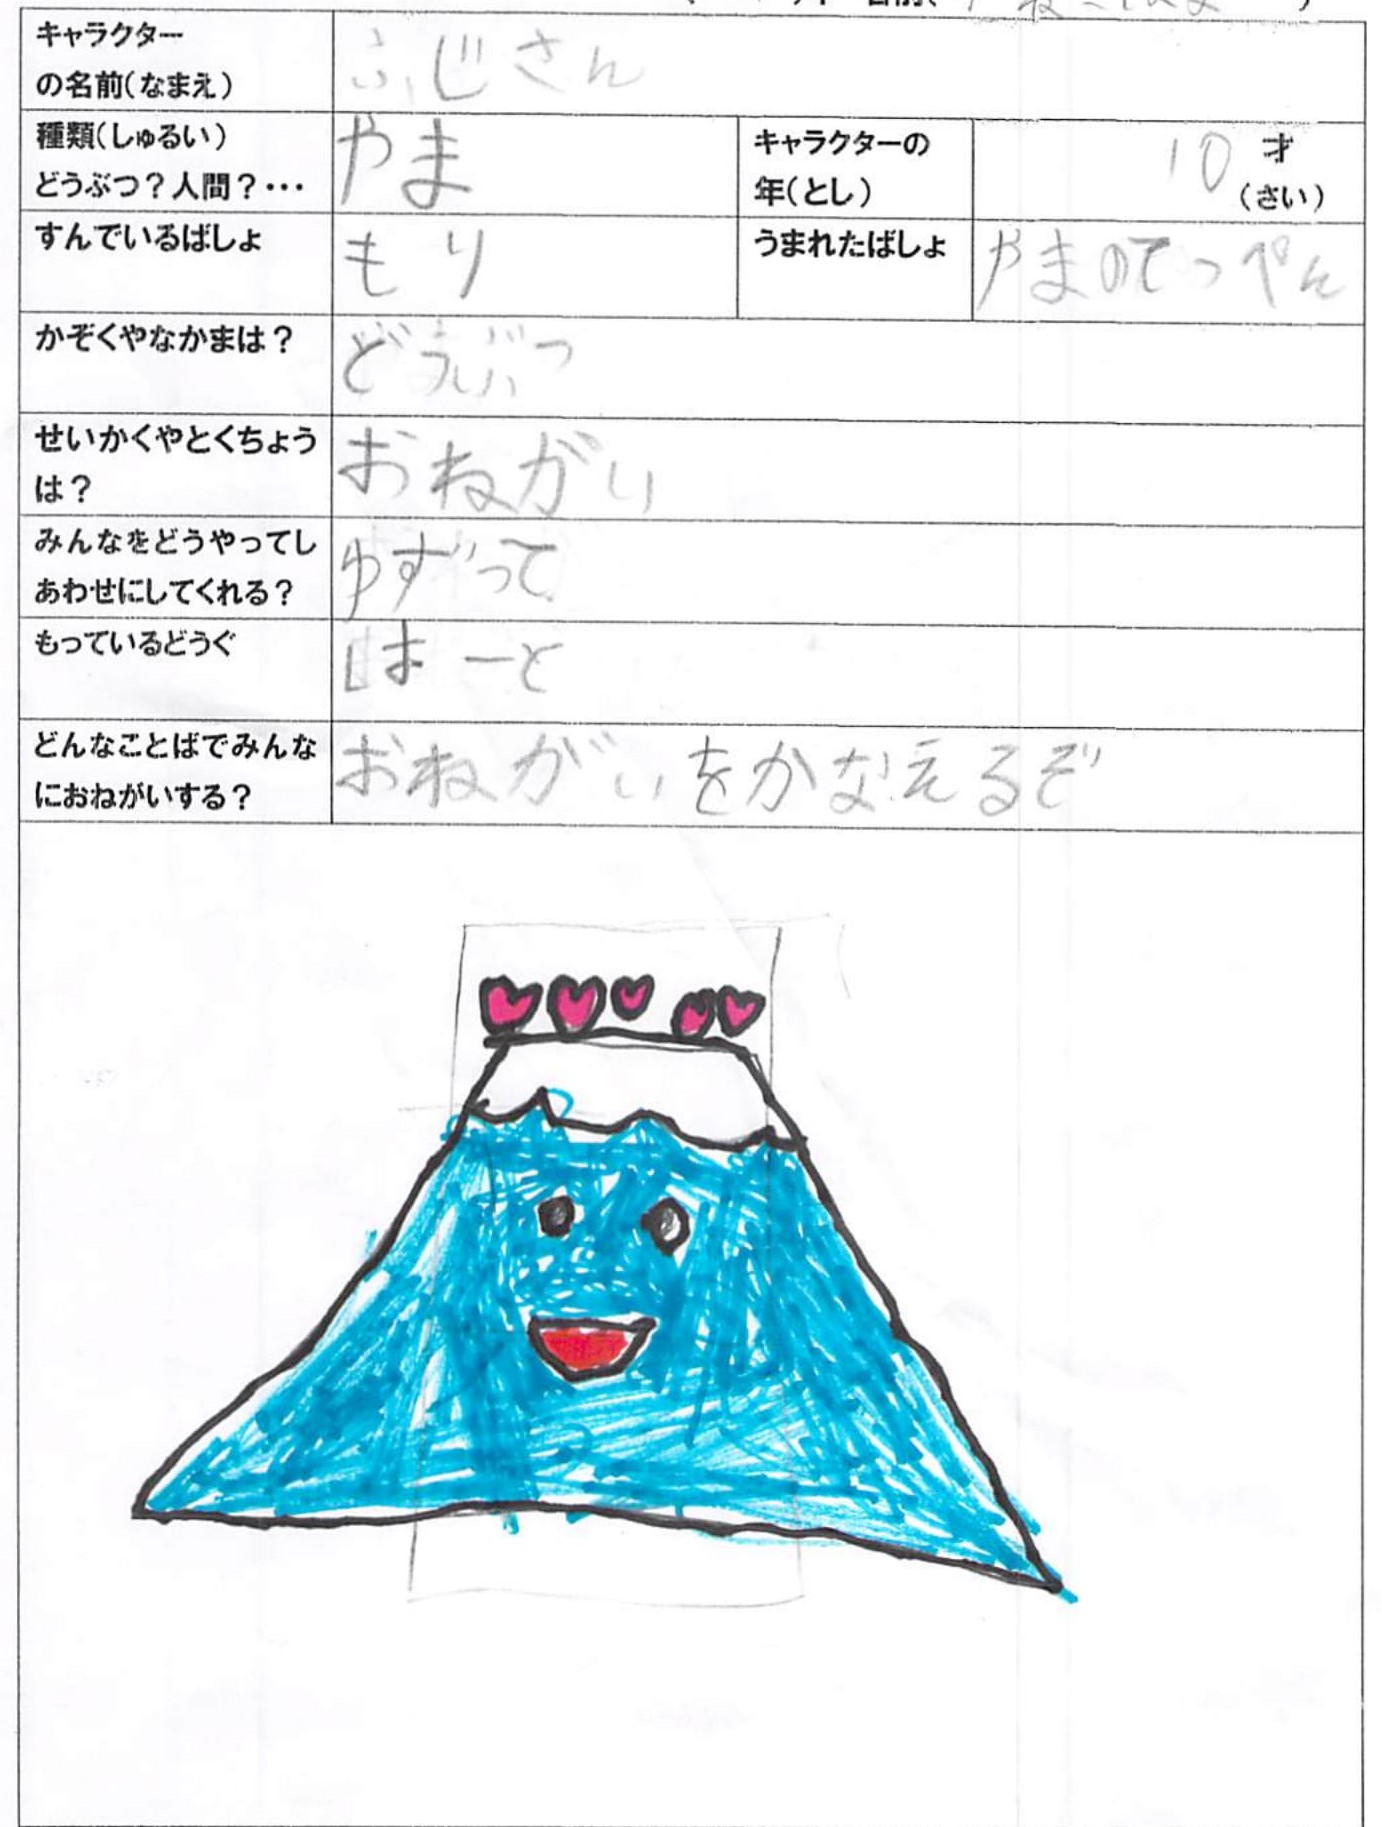 キャラクター
の名前(なまえ)
ふじさん
種類(しゅるい)
どうぶつ?人間?・・・
やま
キャラクターの
年(とし)
10才
(さい)
すんでいるばしょ
もり
うまれたばしょ
やまのてっぺん
かぞくやなかまは?
どうぶつ
せいかくやとくちょう
は?
おねがい
みんなをどうやってし
あわせにしてくれる?
ゆずって
もっているどうぐ
はーと
どんなことばでみんな
におねがいする?
おねがいをかなえるぞ